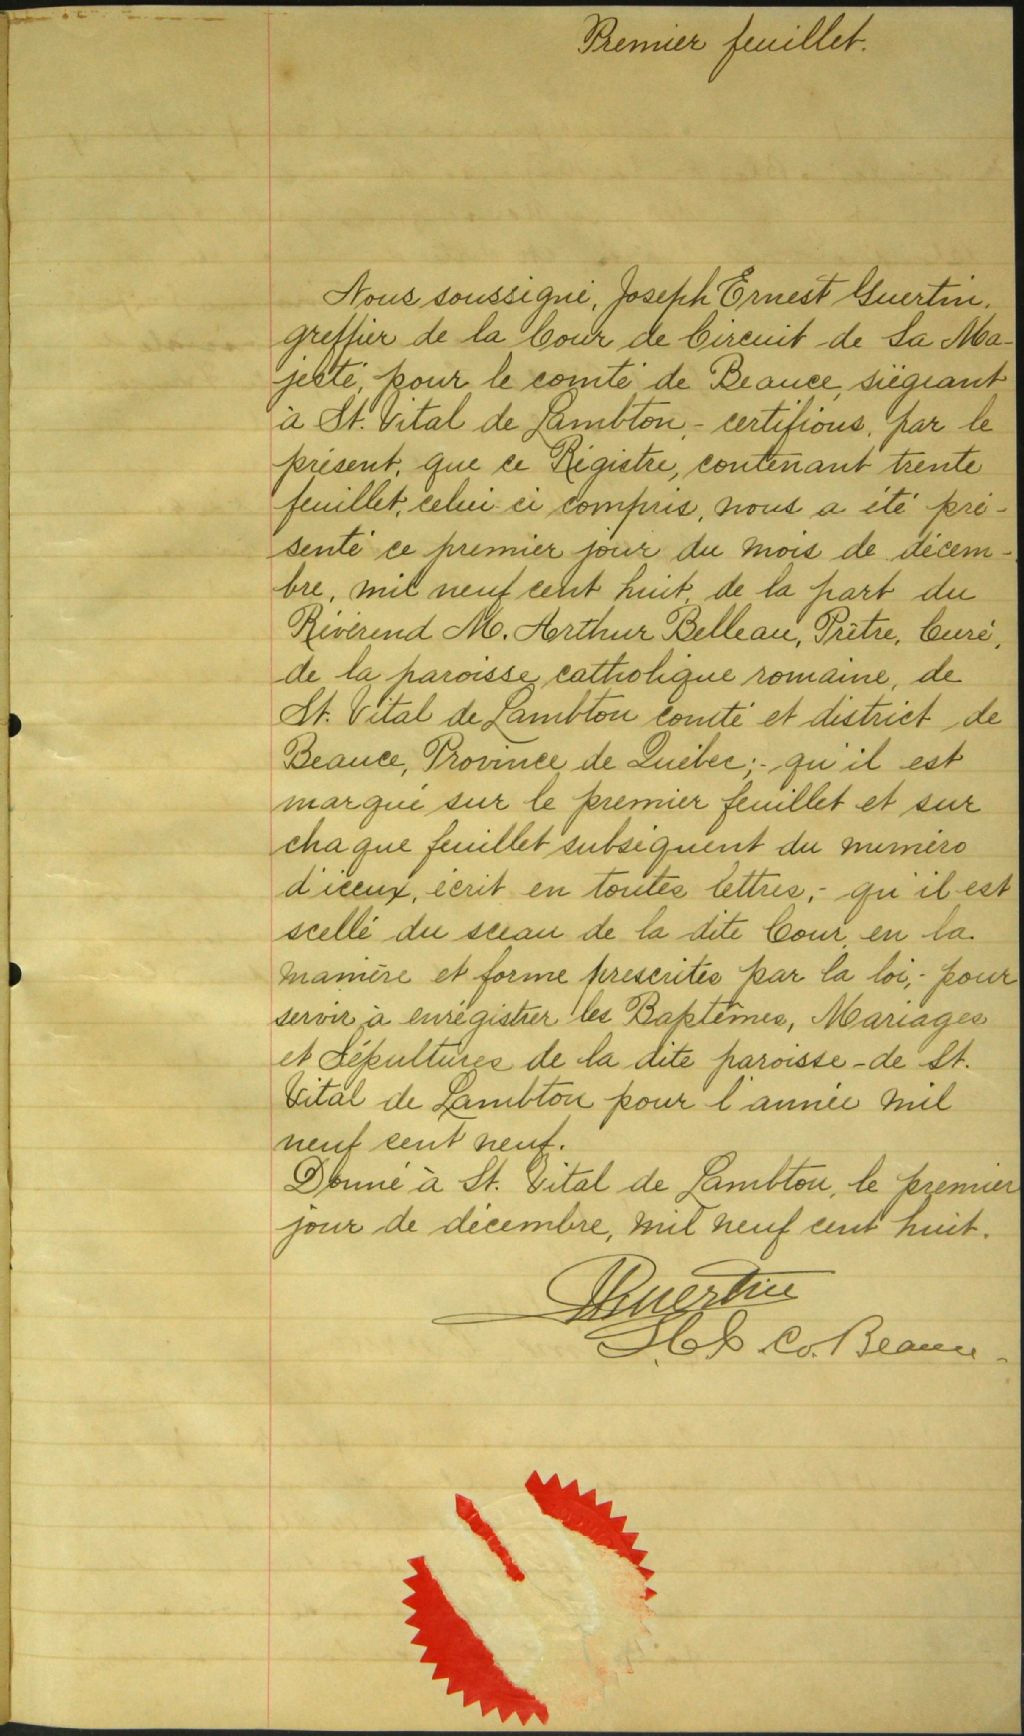 Premier feuillet.
Nous soussigné, Joseph Ernest Guertin,
greffier de la Cour de Circuit de Sa Ma-
jesté, pour le comté de Beauce, siégeant
à St. Vital de Lambton,- certifions, par le
présent, que ce Régistre, contenant trente
feuillet, celui ci compris, nous a été pré-
senté ce premier jour du mois de décem-
bre, mil neuf cent huit, de la part du
Révérend M. Arthur Belleau, Prêtre, Curé,
de la paroisse catholique romaine, de
St. Vital de Lambton comté et district de
Beauce, Province de Québec;- qu'il est
marqué sur le premier feuillet et sur
chaque feuillet subséquent du numéro
d'iceux, écrit en toutes lettres,- qu'il est
scellé du sceau de la dite Cour, en la
manière et forme prescrites par la loi,- pour
servir à enrégistrer les Baptêmes, Mariages
et Sépultures de la dite paroisse-de St.
Vital de Lambton pour l'année mil
neuf cent neuf.
Donné à St. Vital de Lambton, le premier
jour de décembre, mil neuf cent huit.
Guertin
Co. Beauce